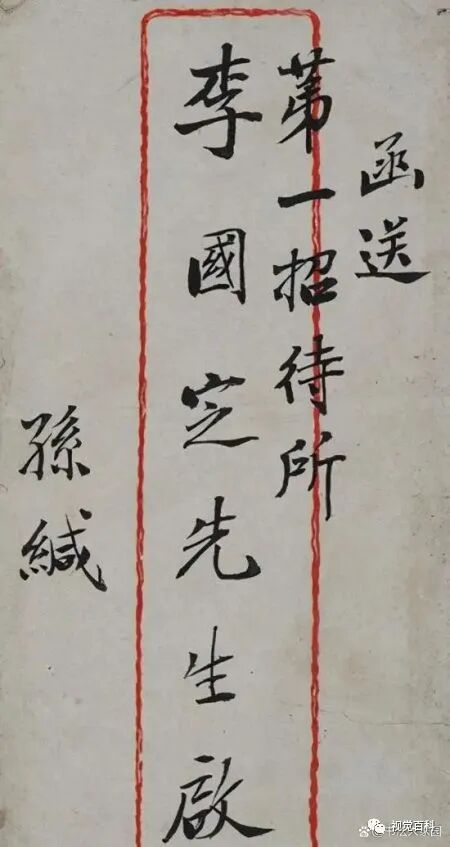 函送
第一招待所
李國定先生啟
孫緘
视觉百科